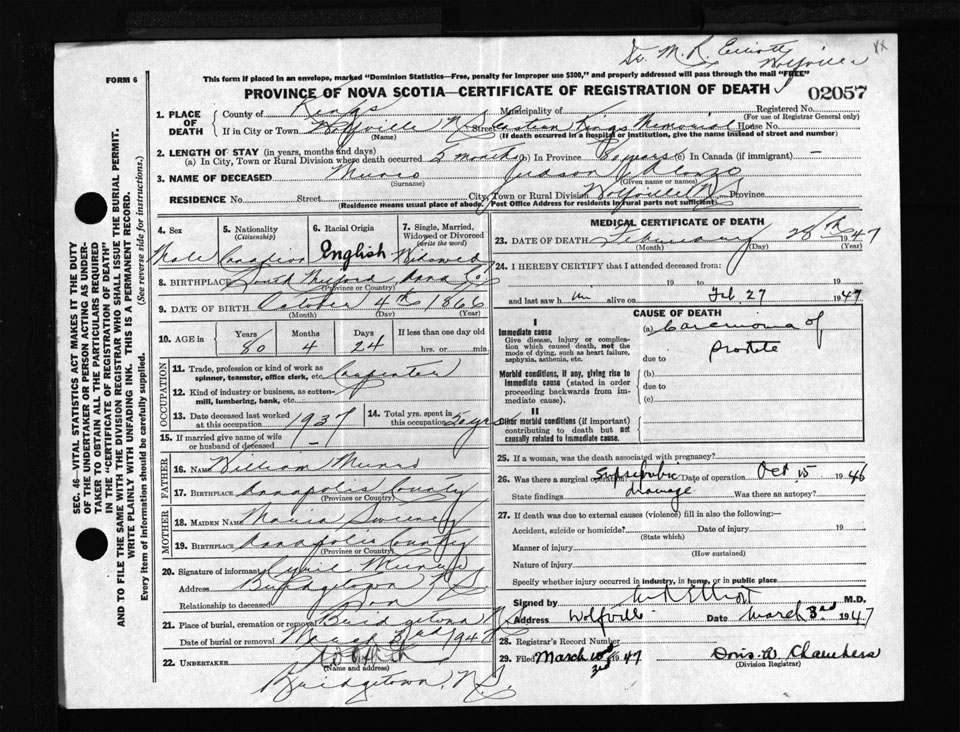 Dr. M. R. Elliott
Wolfville
FORM 6
This form if placed in an envelope, marked "Dominion Statistics—Free, penalty for improper use $300," and properly addressed will pass through the mail "FREE"
PROVINCE OF NOVA SCOTIA—CERTIFICATE OF REGISTRATION OF DEATH
02057
SEC. 46—VITAL STATISTICS ACT MAKES IT THE DUTY
OF THE UNDERTAKER OR PERSON ACTING AS UNDER-
TAKER TO OBTAIN ALL THE PARTICULARS REQUIRED
IN THE "CERTIFICATE OF REGISTRATION OF DEATH"
AND TO FILE THE SAME WITH THE DIVISION REGISTRAR WHO SHALL ISSUE THE BURIAL PERMIT.
WRITE PLAINLY WITH UNFADING INK. THIS IS A PERMANENT RECORD.
Every item of information should be carefully supplied. (See reverse side for instructions.)
1. PLACE OF DEATH
County of Kings Municipality of Registered No.
(For use of Registrar General only)
If in City or Town Wolfville N.S. Street Eastern Kings Memorial House No.
(Name) (If death occurred in a hospital or institution, give the name instead of street and number)
2. LENGTH OF STAY (in years, months and days)
(a) In City, Town or Rural Division where death occurred 5 months (b) In Province 80 years (c) In Canada (if immigrant) —
3. NAME OF DECEASED Munro Judson Alonzo
(Surname) (Given name or names)
RESIDENCE No. Street City, Town or Rural Division Wolfville N.S. Province
(Residence means usual place of abode. Post Office Address for residents in rural parts not sufficient)
4. Sex Male
5. Nationality (Citizenship) Canadian
6. Racial Origin English
7. Single, Married, Widowed or Divorced (write the word) Widowed
8. BIRTHPLACE South Milford Anna Co.
(Province or Country)
9. DATE OF BIRTH October 4th 1866
(Month) (Day) (Year)
10. AGE IN Years 80 Months 4 Days 24 If less than one day old
hrs. or min.
OCCUPATION
11. Trade, profession or kind of work as spinner, teamster, office clerk, etc. Carpenter
12. Kind of industry or business, as cotton-mill, lumbering, bank, etc.
13. Date deceased last worked at this occupation 1937
14. Total yrs. spent in this occupation 50 yrs
15. If married give name of wife or husband of deceased —
FATHER
16. NAME William Munro
17. BIRTHPLACE Annapolis County
(Province or Country)
MOTHER
18. MAIDEN NAME Maria Sweeney
19. BIRTHPLACE Annapolis County
(Province or Country)
20. Signature of informant Munro
Address Bridgetown N.S.
Relationship to deceased Son
21. Place of burial, cremation or removal Bridgetown N.S.
Date of burial or removal March 3rd 1947
22. UNDERTAKER
(Name and address)
Bridgetown, N.S.
MEDICAL CERTIFICATE OF DEATH
23. DATE OF DEATH February 28th 1947
(Month) (Day) (Year)
24. I HEREBY CERTIFY that I attended deceased from
19 to 19
and last saw him alive on Feb. 27 1947
CAUSE OF DEATH
I
Immediate cause
Give disease, injury or complication which caused death, not the mode of dying, such as heart failure, asphyxia, asthenia, etc.
(a) Carcinoma of
due to prostate
Morbid conditions, if any, giving rise to immediate cause (stated in order proceeding backwards from immediate cause).
(b)
due to
(c)
II
Other morbid conditions (if important) contributing to death but not causally related to immediate cause.
25. If a woman, was the death associated with pregnancy?
26. Was there a surgical operation? Suprapubic Date of operation Oct 15 1946
State findings drainage Was there an autopsy?
27. If death was due to external causes (violence) fill in also the following:—
Accident, suicide or homicide? Date of injury 19
(State which)
Manner of injury
(How sustained)
Nature of injury
Specify whether injury occurred in industry, in home, or in public place
Signed by M R Elliott M.D.
Address Wolfville Date March 3rd 1947
28. Registrar's Record Number
29. Filed March 1947 Doris W. Chambers
3rd (Division Registrar)